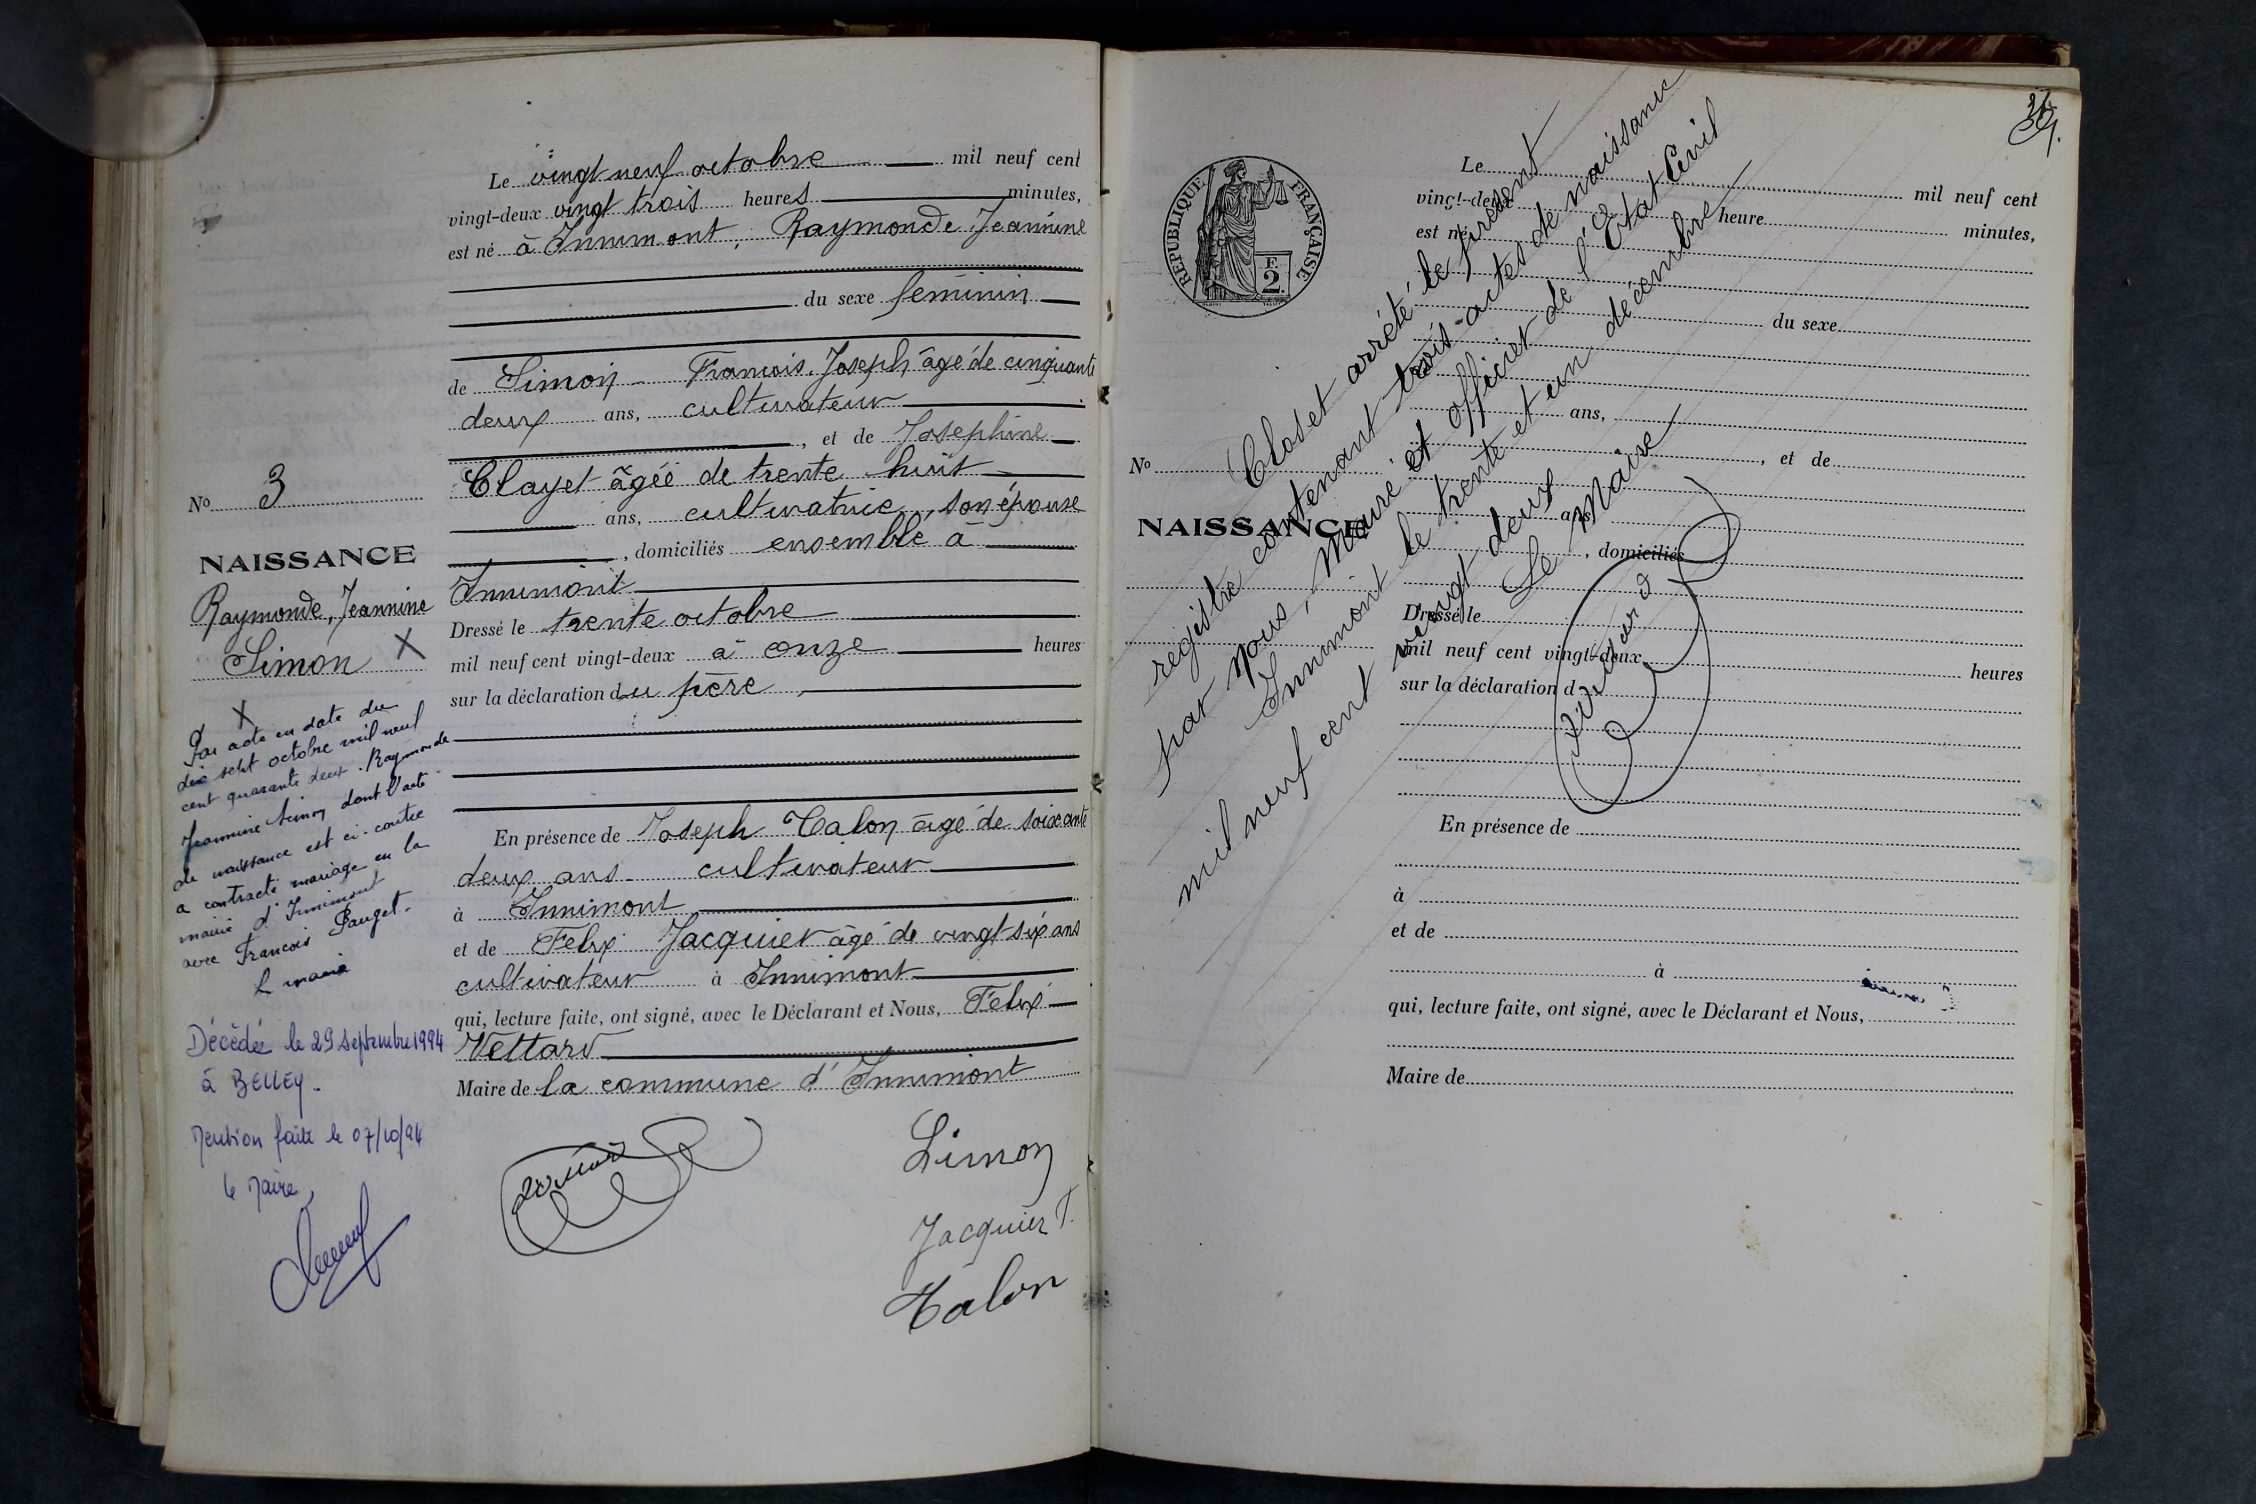 Le vingt neuf octobre mil neuf cent
vingt-deux vingt trois heures minutes,
est né à Innimont, Raymonde Jeannine
du sexe féminin
de Simon François Joseph âgé de cinquante
deux ans, cultivateur
, et de Joséphine
Clayet âgée de trente huit
ans, cultivatrice, son épouse
, domiciliés ensemble à
Innimont
Dressé le trente octobre
mil neuf cent vingt-deux à onze heures
sur la déclaration du père
En présence de Joseph Talon âgé de soixante
deux ans cultivateur
à Innimont
et de Felix Jacquier âgé de vingt six ans
cultivateur à Innimont
qui, lecture faite, ont signé, avec le Déclarant et Nous, Félix
Vettard
Maire de la commune d'Innimont
Simon
Jacquier F.
Talon
No 3
NAISSANCE
Raymonde, Jeannine
Simon X
X
Par acte en date du
dix sept octobre mil neuf
cent quarante deux. Raymonde
Jeannine Simon dont l'acte
de naissance est ci-contre
a contracté mariage en la
mairie d'Innimont
avec François Pauget.
le maire
Décédée le 29 septembre 1994
à BELLEY.
Mention faite le 07/10/94
le Maire,
RÉPUBLIQUE FRANÇAISE
F.
2.
Le mil neuf cent
vingt-deux heure minutes,
est né
du sexe
de
ans,
, et de
ans,
, domiciliés
Dressé le
mil neuf cent vingt-deux heures
sur la déclaration d
En présence de
à
et de
à
qui, lecture faite, ont signé, avec le Déclarant et Nous,
Maire de
No
NAISSANCE
Clos et arrêté le présent
registre contenant trois actes de naissance
par Nous, Maire et officier de l'Etat Civil
Innimont le trente et un décembre
mil neuf cent vingt deux
Le Maire
Vettard